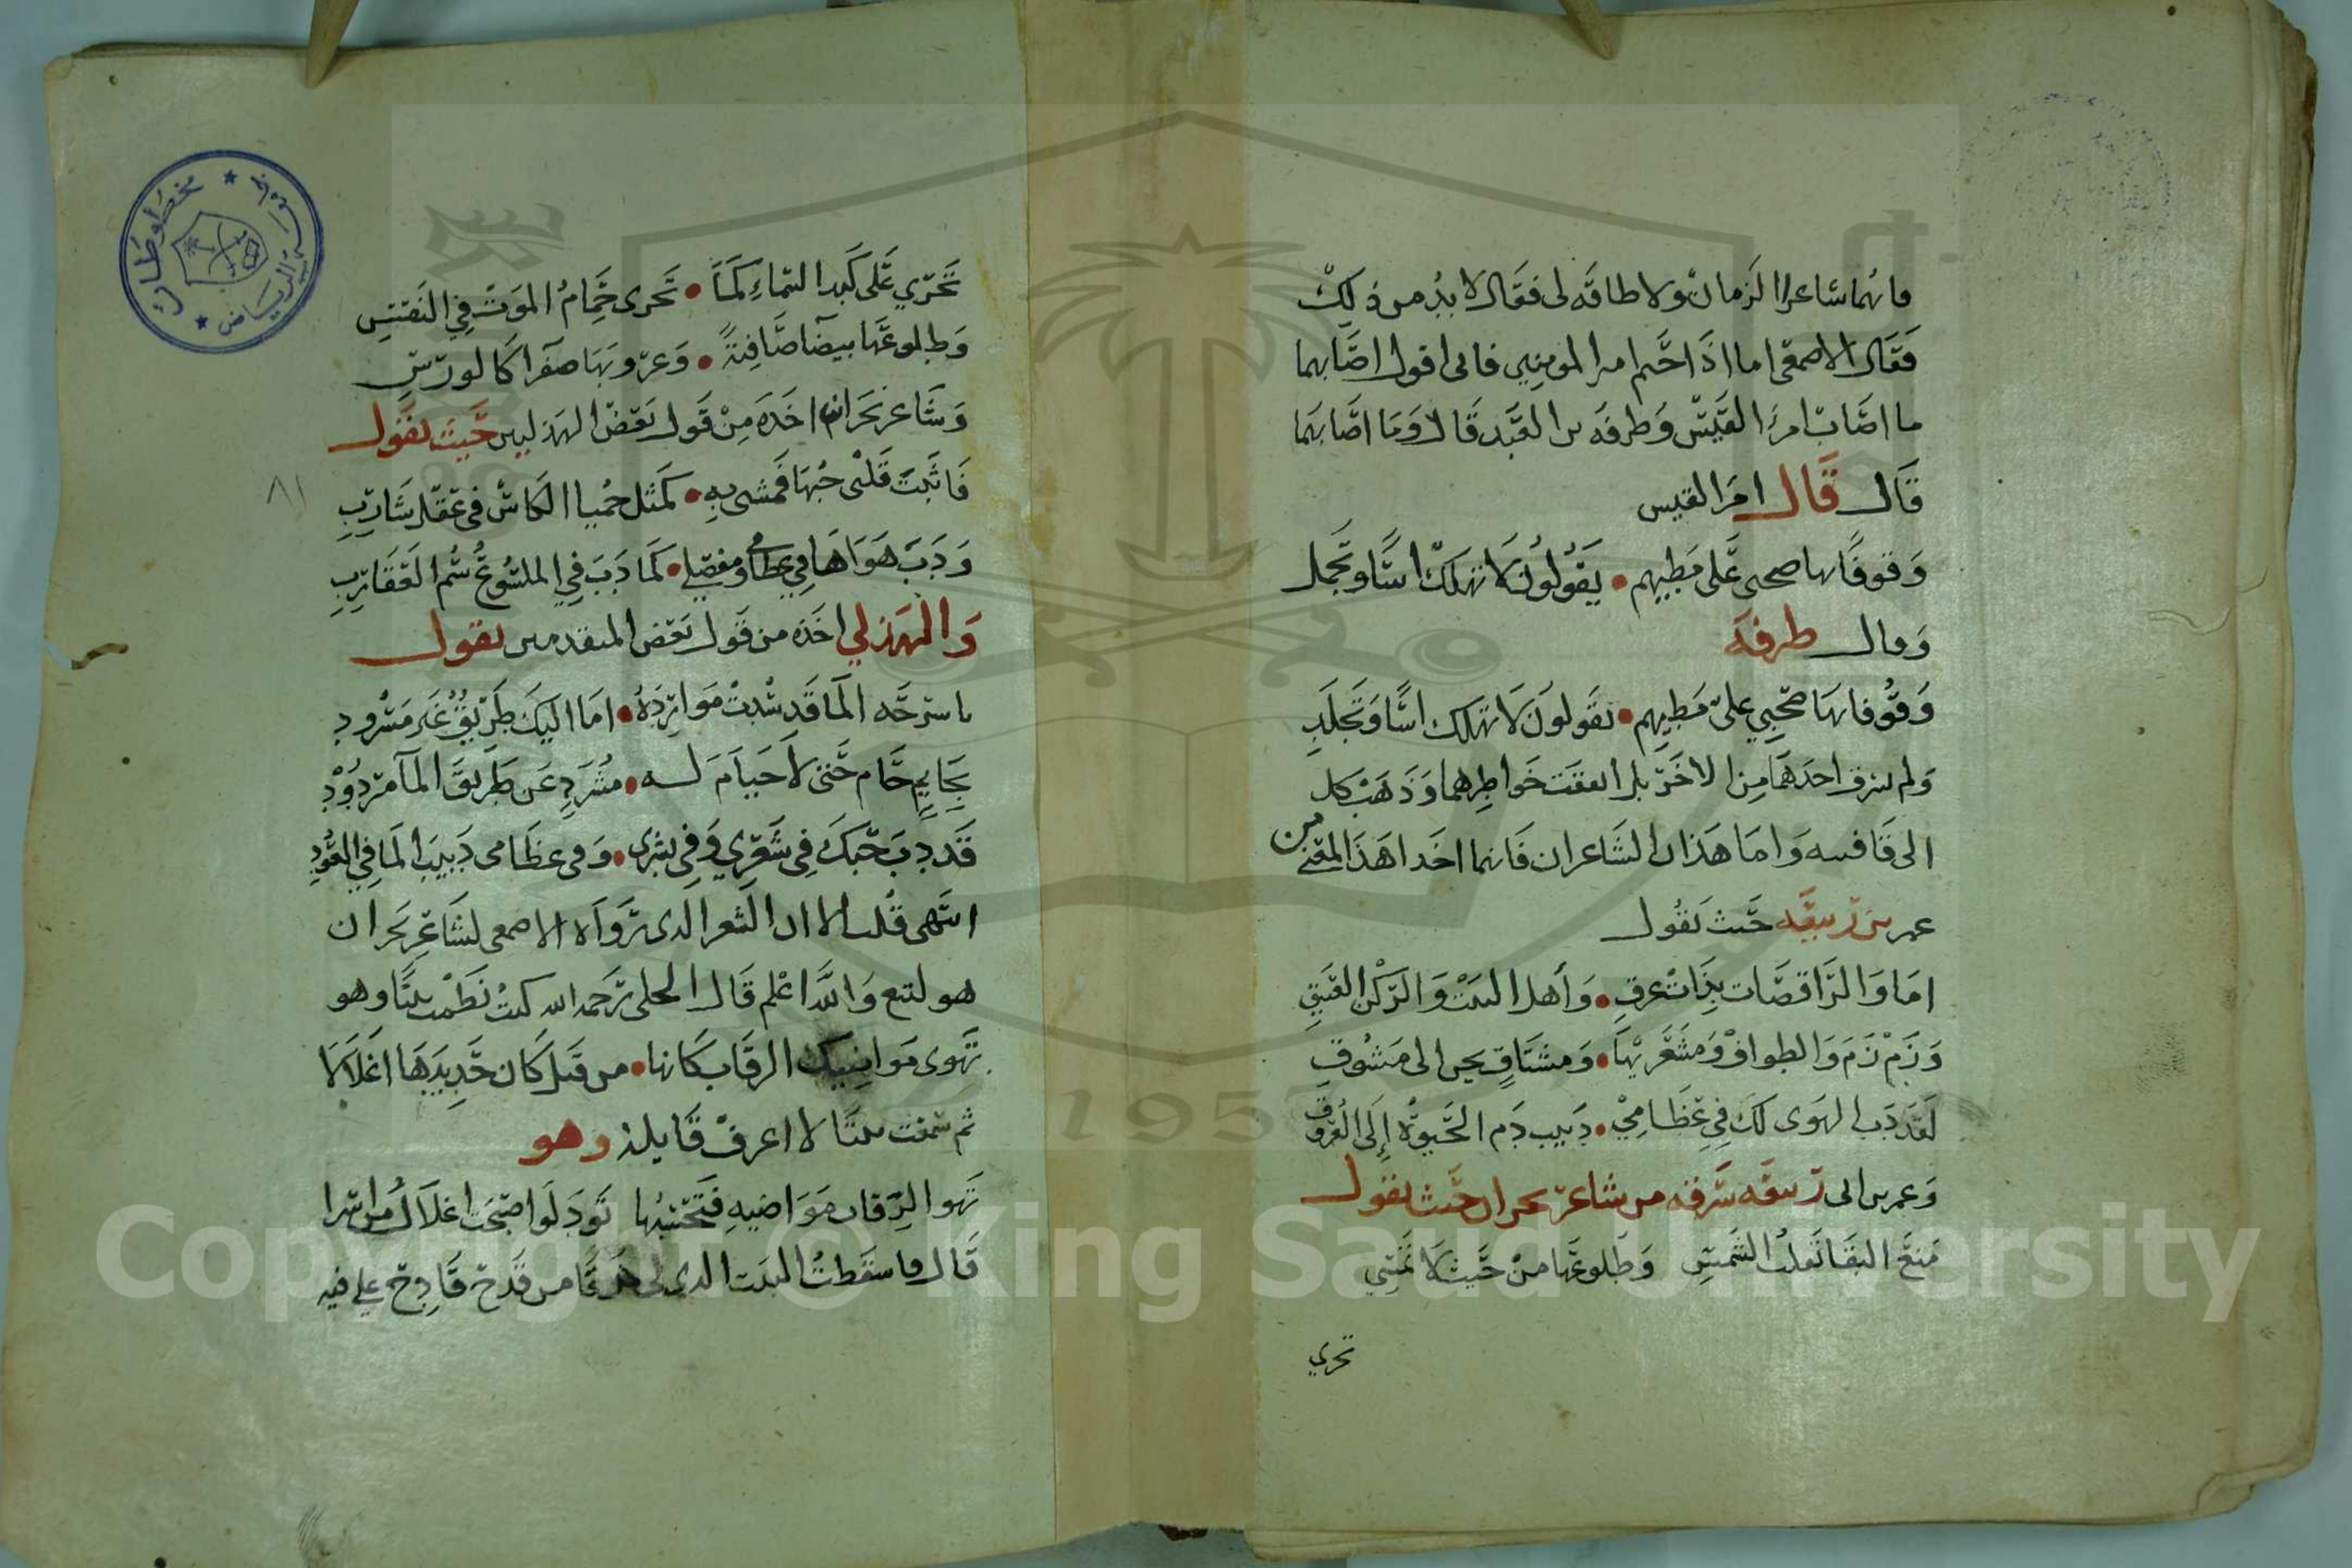 فانهما شاعرا الزمان ولا طاقه لى فقال لا بد من ذلك
فقال الاصمعى اما اذا حتم امير المومنين فانى اقول اصابهما
ما اصاب امرء القيس وطرفه بن العبد قالا وما اصابهما
قال قال امرا القيس
وقوفا بها صحبى على مطيهم • يقولون لا تهلك اسا وتجمل
وقال طرفه
وقوفا بها صحبي على مطيهم • يقولون لا تهلك اسا وتجلد
ولم يسرق احدهما من الاخر بل اتفقت خواطرهما وذهب كل
الى قافيه واما هذان الشاعران فانما اخذا هذا المعنى من
عمر بن ربيعه حيث يقول
اما والراقصات بذات عرق • وأهل البيت والركن العتيق
وزمزم والطواف ومشعريها • ومشتاق يحن الى مشوق
لقد دب الهوى لك في عظامي • دبيب دم الحيوة إلى العروق
وعمر بن ابى ربيعه سرقه من شاعر نجران حيث يقول
منع البقا تقلب الشمس وطلوعها من حيث لا تمسي
تجري
تجري على كبد السماء كما • تجرى حمام الموت في النفس
وطلوعها بيضا صافية • وغروبها صفرا كالورس
وشاعر نجران اخده من قول بعض الهذليين حيث يقول
فاثبت قلبى حبها فمشى به • كمثل حميا الكاس فى عقل شارب
ودب هواها في عظامي ومفصلي • كما دب في الملسوع سم العقارب
والهذلي اخذه من قول بعض المتقدمين يقول
يا سرحه الما قد سدت موارده • اما اليك طريق غير مسدود
بحايم حام حتى لا حيام له • مشرد عن طريق الما مردود
قد دب حبك في شعري وفي بشرى • وفى عظامى دبيب الما في العود
انتهى قلت الا ان الشعر الدى رواه الاصمعى لشاعر نجران
هو لتبع والله اعلم قال الحلى رحمه الله كنت نظمت بيتا وهو
تهوى مواضيك الرقاب كانها • من قبل كان حديدها اغلالا
ثم سمعت بيتا لا اعرف قايله وهو
تهوا الرقاب مواضيه فتحسبها تود لو اصبحت اغلال من اسرا
قال فاسقطت البيت الدى لى من قدح قادح على فيه
٨١
مخطوطات
الرياض
Copyright © King Saud University
1957